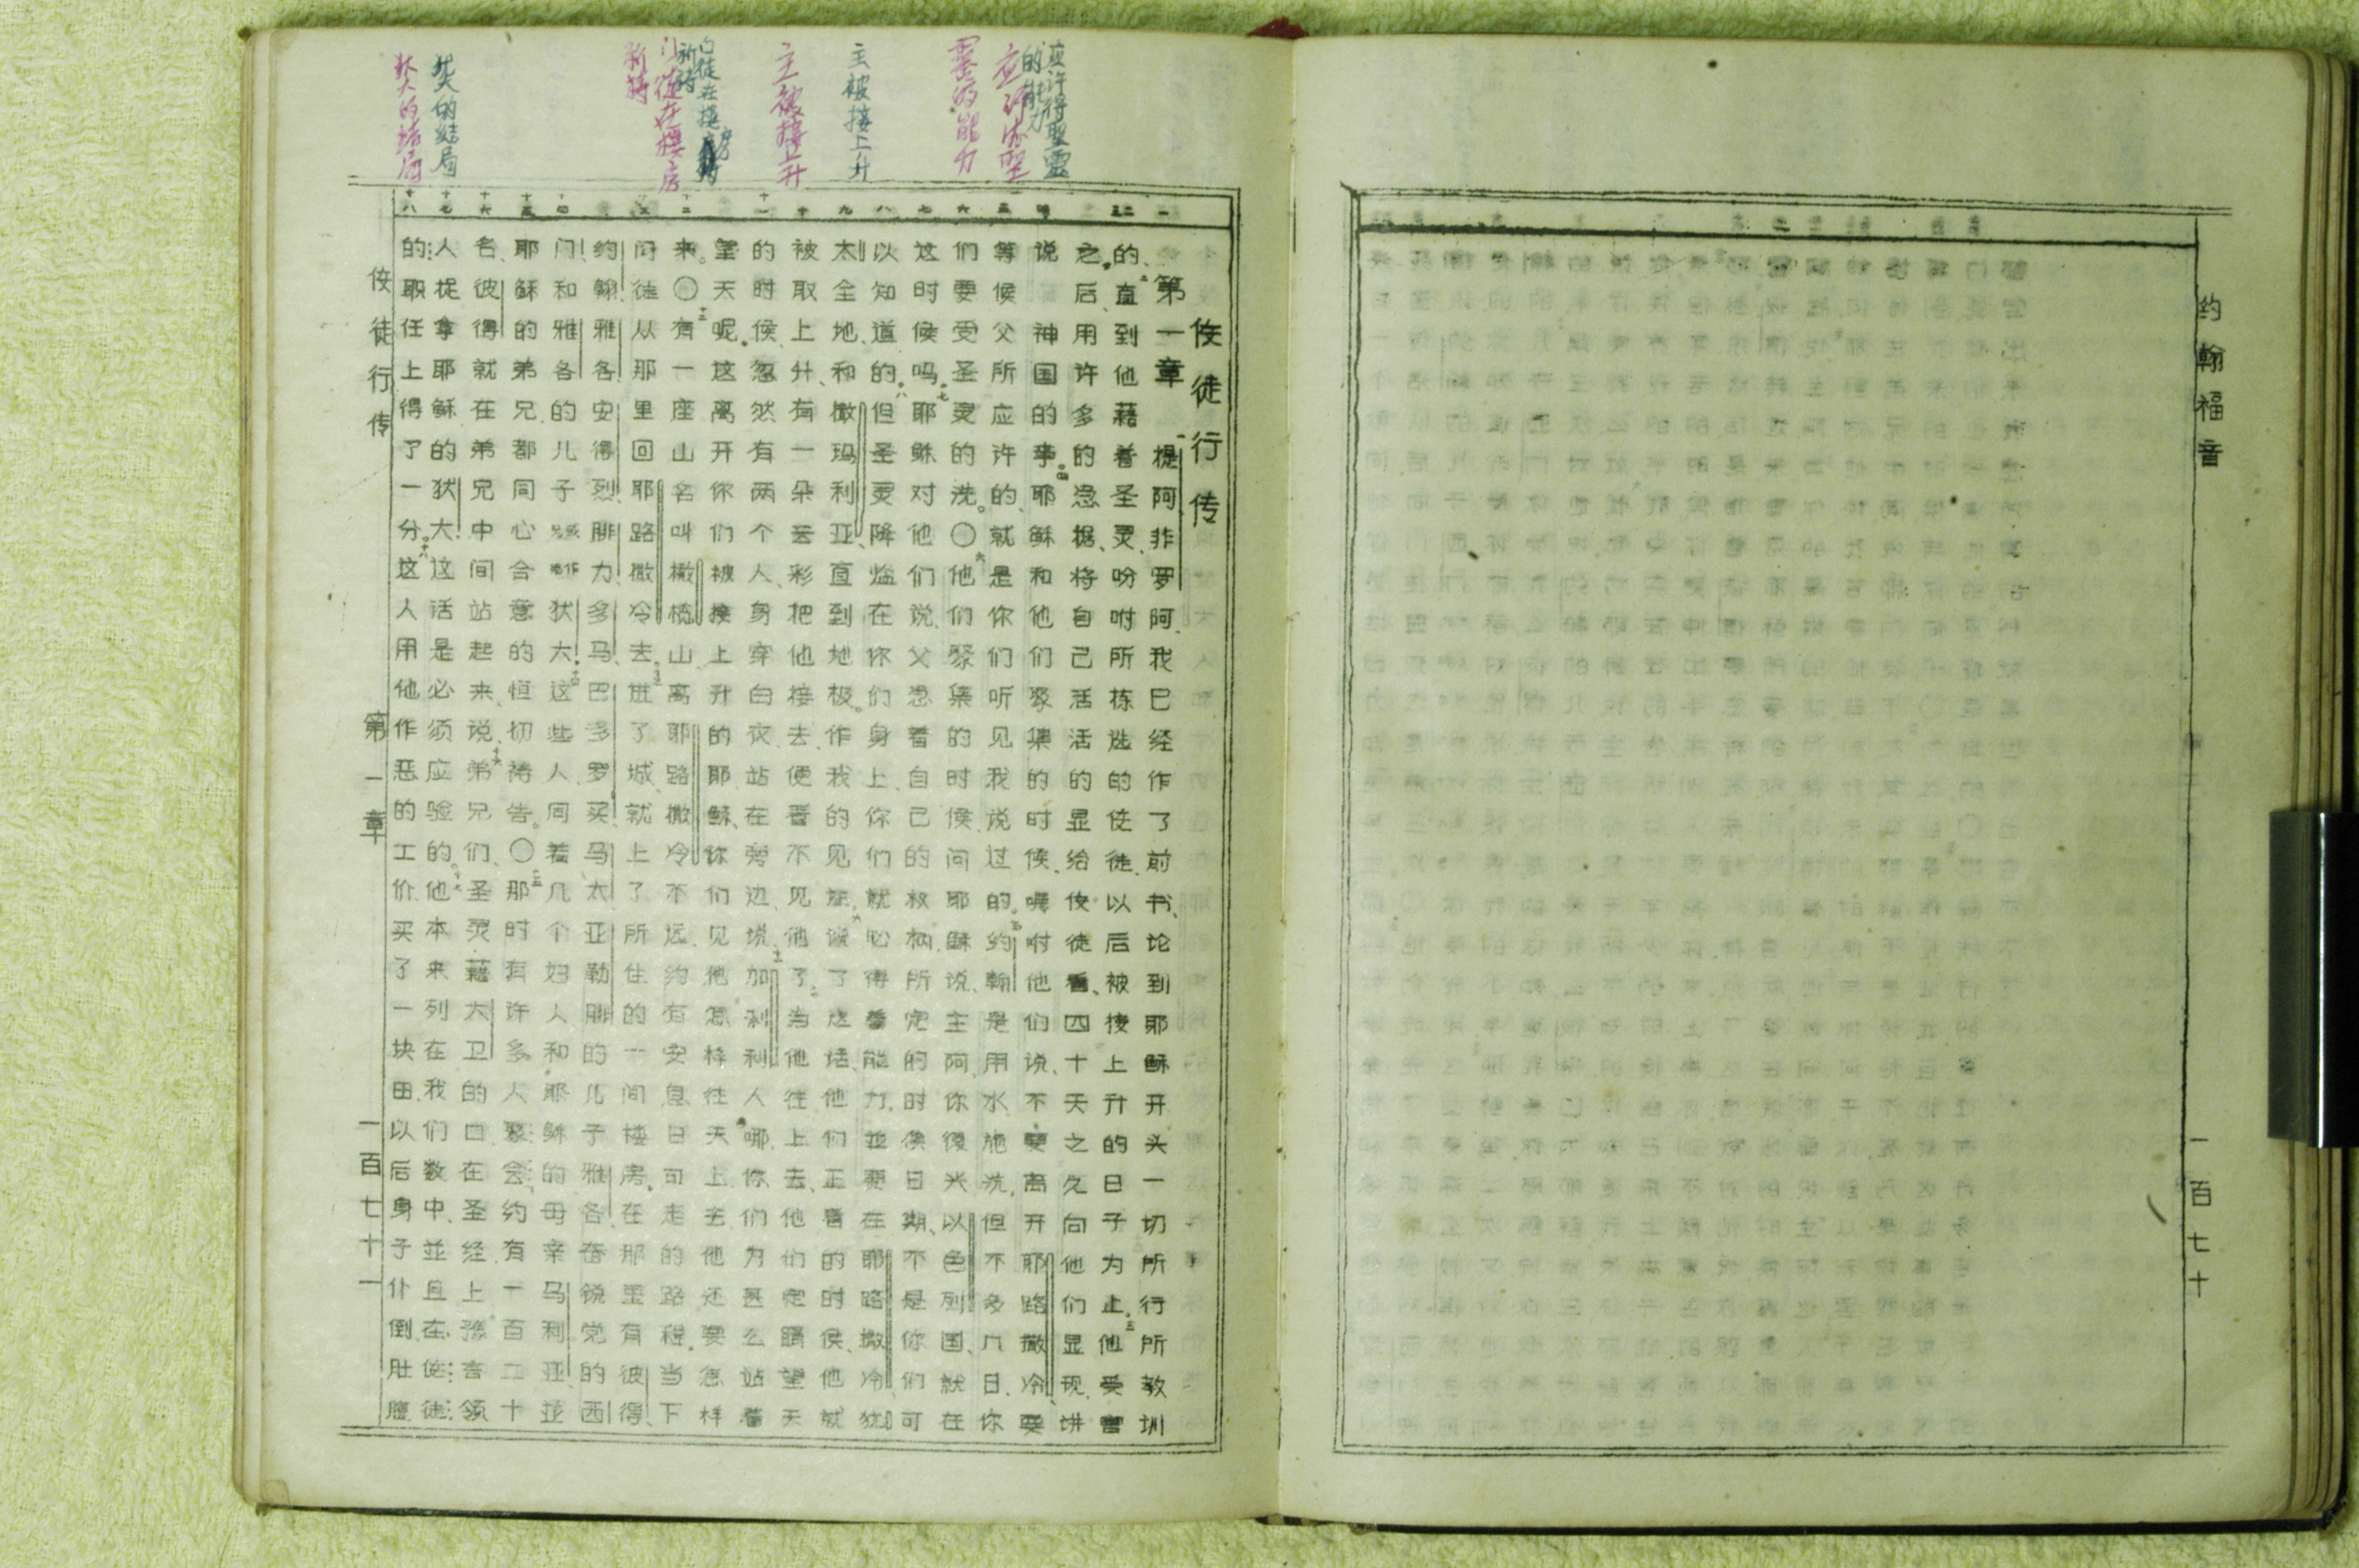 约翰福音
一百七十
应许得聖霊
的能力
应许的聖
霊的能力
主被接上升
主被接上升
门徒在楼房
祈祷
犹大的结局
犹大的结局
一 二 三 四 五 六 七 八 九 十 十一 十二 十三 十四 十五 十六 十七 十八
使徒行传
第一章 提阿非罗阿、我已经作了前书、论到耶稣开头一切所行所教训
的、直到他藉着圣灵、吩咐所栋选的使徒、以后被接上升的日子为止。三他受害
之后、用许多的凭据、将自己活活的显给使徒看、四十天之久向他们显现、讲
说神国的事。四耶稣和他们聚集的时候、嘱咐他们说、不要离开耶路撒冷、要
等候父所应许的、就是你们听见我说过的。五约翰是用水施洗、但不多几日、你
们要受圣灵的洗。〇六他们聚集的时候、问耶稣说、主阿、你復兴以色列国、就在
这时候吗。七耶稣对他们说、父凭着自己的权柄、所定的时候日期、不是你们可
以知道的。八但圣灵降临在你们身上、你们就必得着能力、並要在耶路撒冷、犹
太全地、和撒玛利亚、直到地极。作我的见证。九说了这话、他们正看的时候、他就
被取上升、有一朵云彩把他接去、便看不见他了。十当他往上去、他们定睛望天
的时候、忽然有两个人、身穿白衣、站在旁边、说、十一加利利人哪、你们为甚么站着
望天呢。这离开你们被接上升的耶稣、你们见他怎样往天上去、他还要怎样
来。〇十二有一座山名叫橄榄山、离耶路撒冷不远、约有安息日可走的路程、当下
门徒从那里回耶路撒冷去。十三进了城、就上了所住的一间楼房、在那里有彼得、
约翰、雅各、安得烈、腓力、多马、巴多罗买、马太、亚勒腓的儿子雅各、奋锐党的西
门、和雅各的儿子犹大。十四这些人、同着几个妇人、和耶稣的母亲马利亚、並
耶稣的弟兄、都同心合意的恒切祷告。〇十五那时有许多人聚会、约有一百二十
名、彼得就在弟兄中间站起来、说、十六弟兄们、圣灵藉大卫的口、在圣经上豫言领
人捉拿耶稣的犹大、这话是必须应验的。十七他本来列在我们数中、並且在使徒
的职任上得了一分。十八这人用他作恶的工价、买了一块田、以后身子仆倒、肚腹
使徒行传
第一章
一百七十一